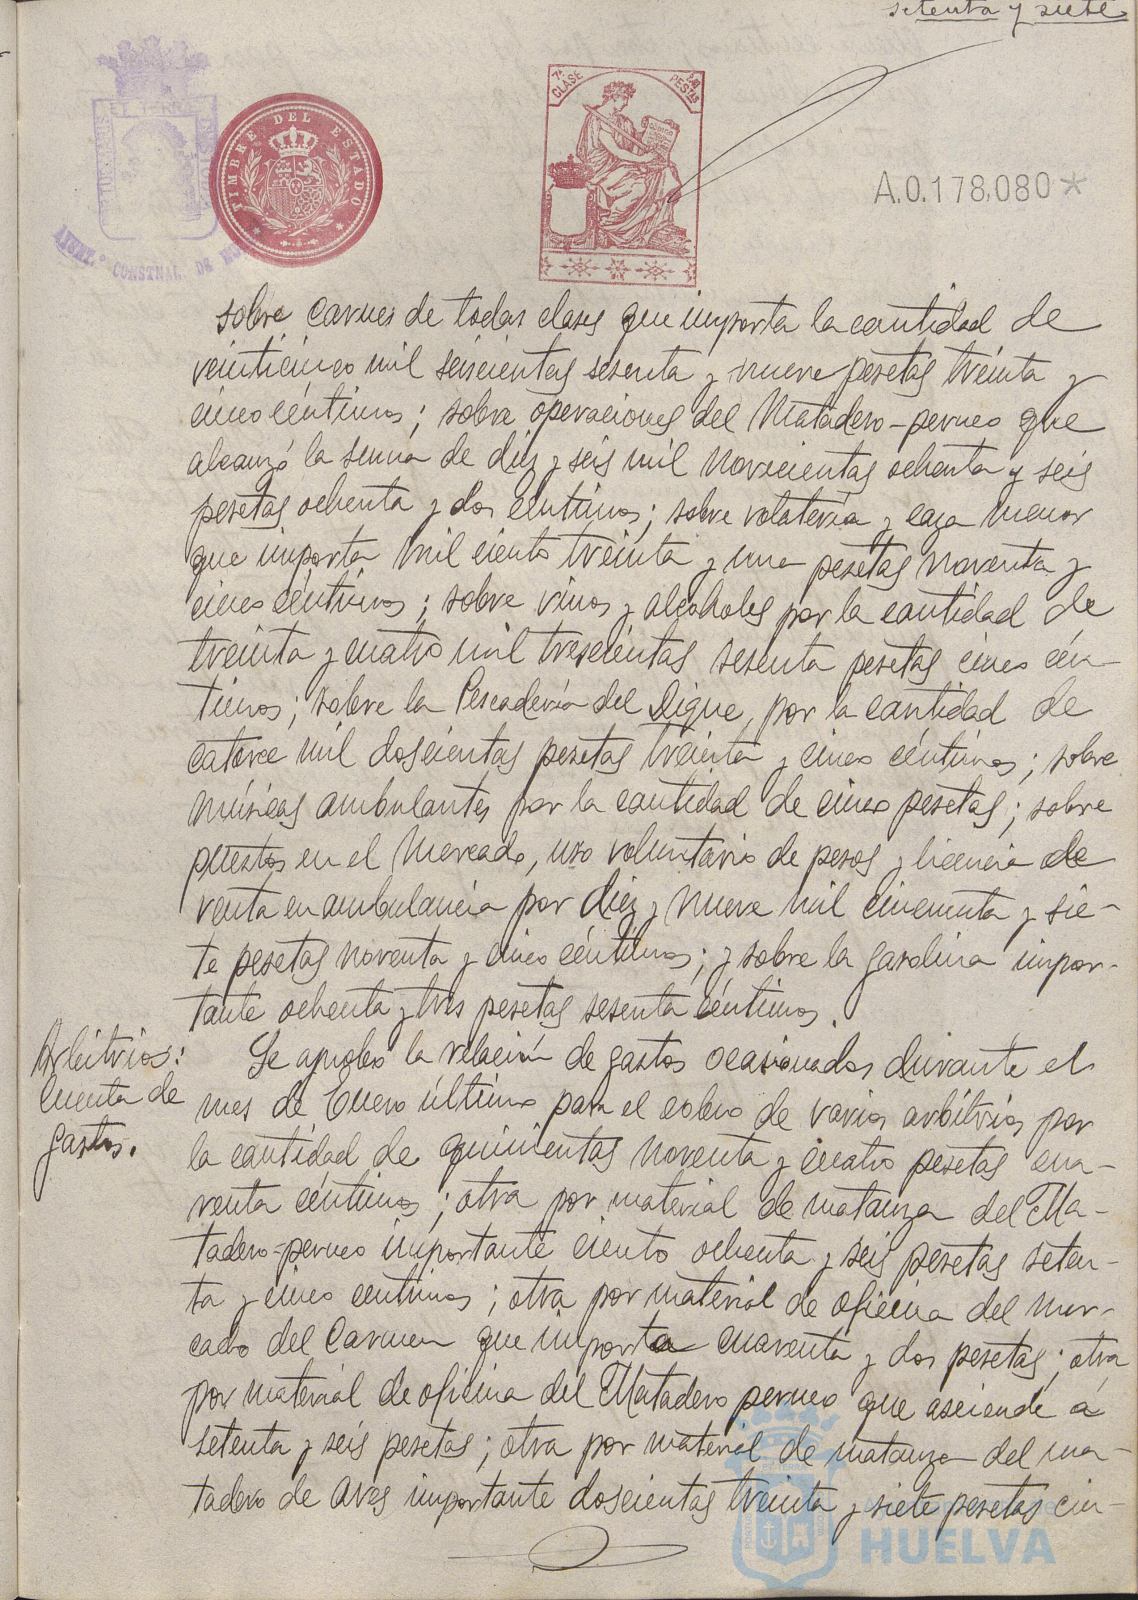 setenta y siete
TIMBRE DEL ESTADO
7ª CLASE
PESETAS
A.0.178,080*
AYUNT.º CONSTNAL. DE
sobre carnes de todas clases que importa la cantidad de
veinticinco mil seiscientas sesenta y nueve pesetas treinta y
cinco céntimos; sobre operaciones del Matadero-perneo que
alcanzó la suma de diez y seis mil novecientas ochenta y seis
pesetas ochenta y dos céntimos; sobre volatería y caza menor
que importa mil ciento treinta y una pesetas noventa y
cinco céntimos; sobre vinos y alcoholes por la cantidad de
treinta y cuatro mil trescientas sesenta pesetas cinco cén-
timos; sobre la Pescadería del Dique, por la cantidad de
catorce mil doscientas pesetas treinta y cinco céntimos; sobre
músicas ambulantes por la cantidad de cinco pesetas; sobre
puestos en el Mercado, uso voluntario de pesos y licencia de
venta en ambulancia por diez y nueve mil cincuenta y sie-
te pesetas noventa y cinco céntimos; y sobre la gasolina impor-
tante ochenta y tres pesetas sesenta céntimos.
Arbitrios:
Cuenta de
gastos.
Se aprobó la relación de gastos ocasionados durante el
mes de Enero último para el cobro de varios arbitrios por
la cantidad de quinientas noventa y cuatro pesetas cua-
renta céntimos; otra por material de matanza del Ma-
tadero-perneo importante ciento ochenta y seis pesetas seten-
ta y cinco céntimos; otra por material de oficina del Mer-
cado del Carmen que importa cuarenta y dos pesetas; otra
por material de oficina del Matadero perneo que asciende á
setenta y seis pesetas; otra por material de matanza del ma-
tadero de aves importante doscientas treinta y siete pesetas cin-
HUELVA